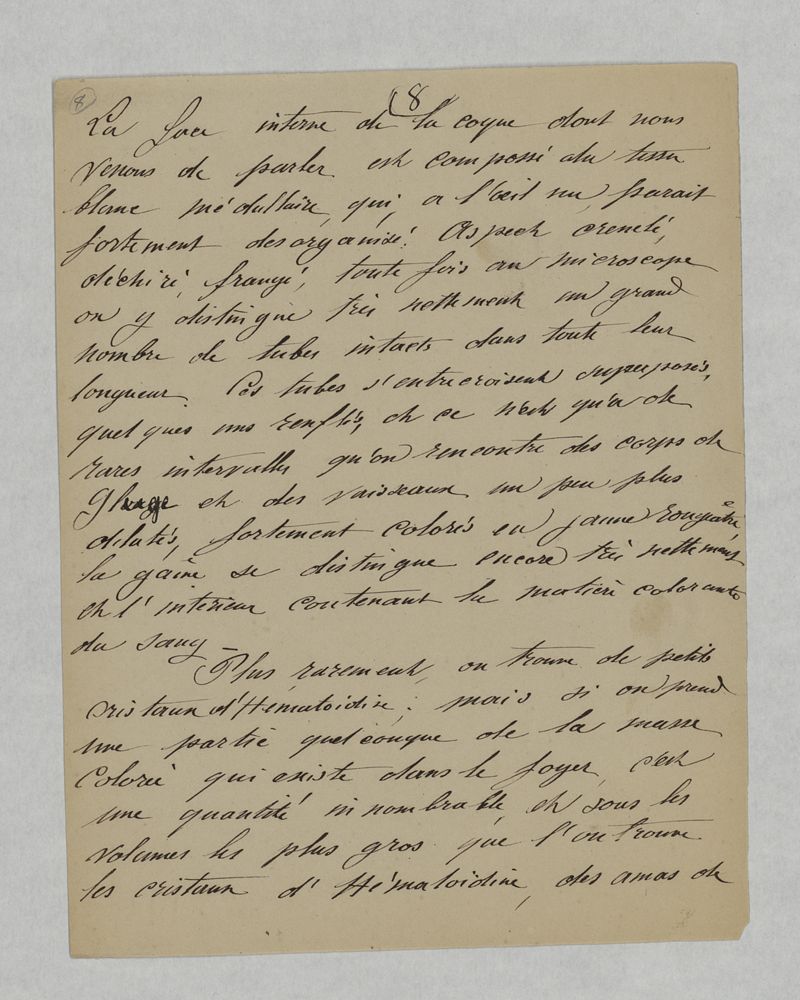 8
(8
La face interne de la coque dont nous
venons de parler est composé du tissu
blanc médullaire, qui, a l'œil nu, parait
fortement desorganisé. Aspect crenelé,
déchiré, frangé, toute fois au microscope
on y distingue très nettement un grand
nombre de tubes intacts dans toute leur
longueur. Ces tubes s'entrecroisent superposés,
quelques uns renflés, et ce n'est qu'a de
rares intervalles qu'on rencontre des corps de
Gluge et des vaisseaux un peu plus
dilatés, fortement colorés en jaune rougeâtre
la gaine se distingue encore très nettement
et l'interieur contenant la matiere colorante
du sang –
Plus rarement, on trouve de petits
cristaux d'Hématoïdine ; mais si on prend
une partie quelconque de la masse
Colorée qui existe dans le foyer, c'est
une quantité innombrable et sous les
volumes les plus gros que l'on trouve
les cristaux d'Hématoïdine, des amas de